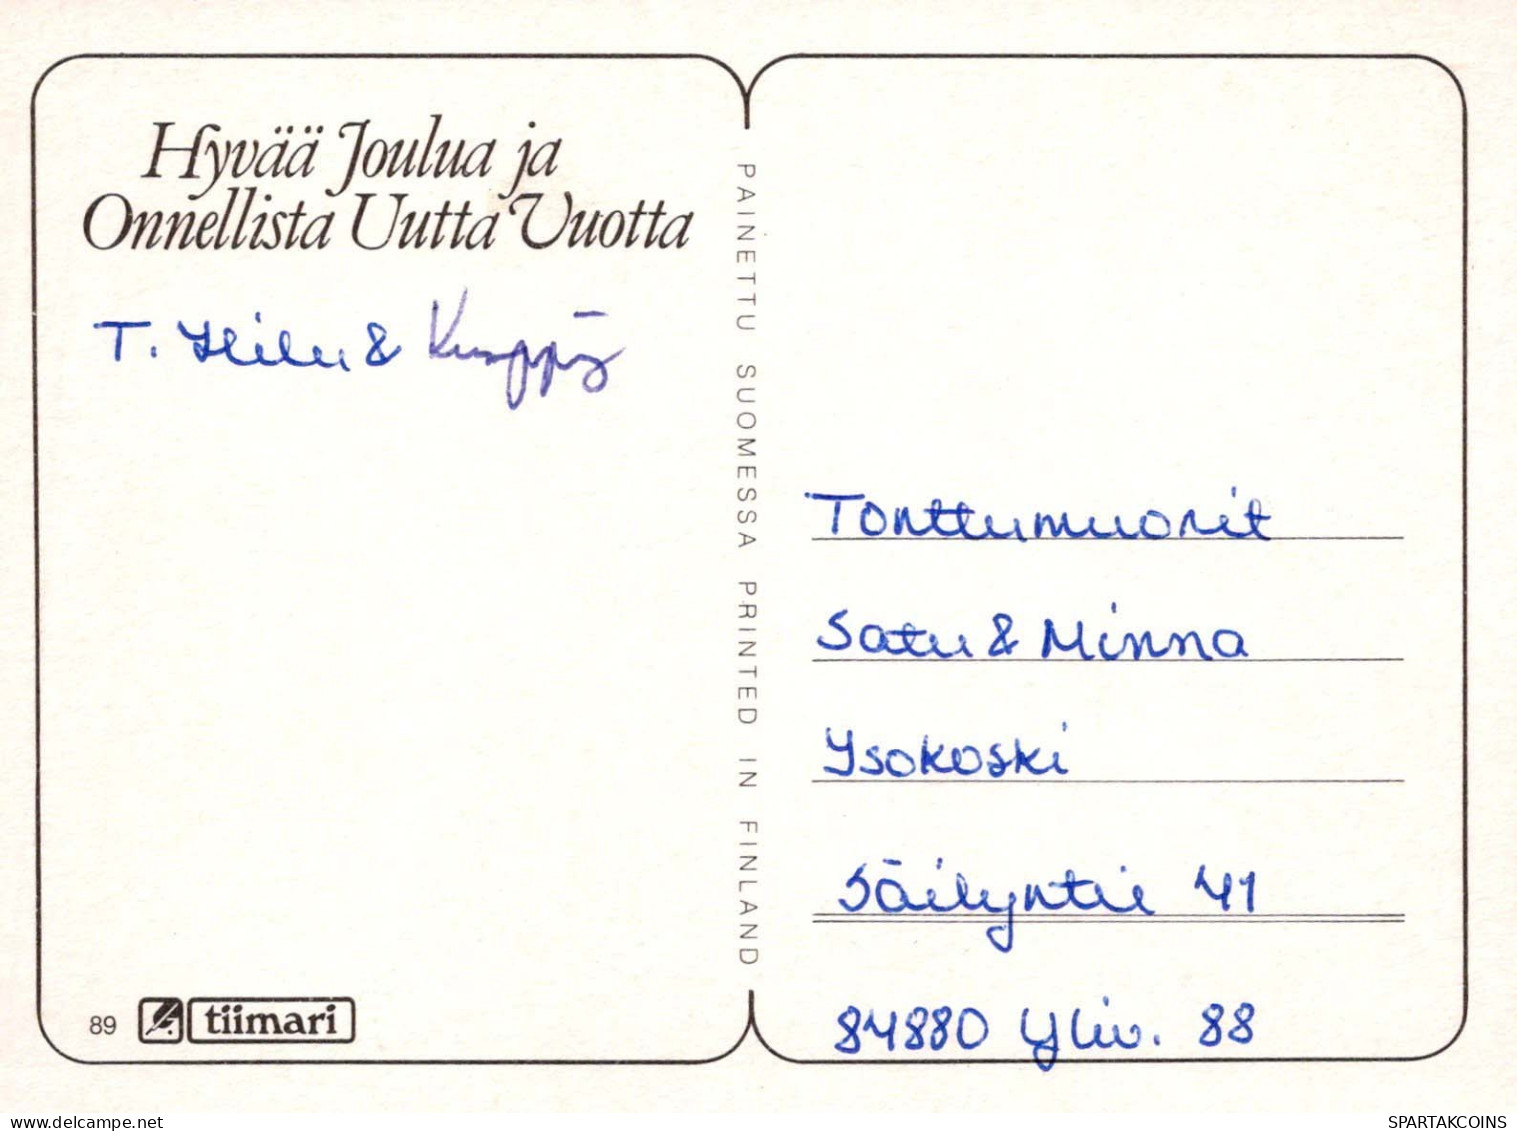 Hyvää Joulua ja
Onnellista Uutta Vuotta
T. Heilu &
89 tiimari
PAINETTU SUOMESSA PRINTED IN FINLAND
Tonttumuorit
Satu & Minna
Ysokoski
Säilyntie 41
84880 Yliv. 88
delcampe.net
SPARTAKCOINS